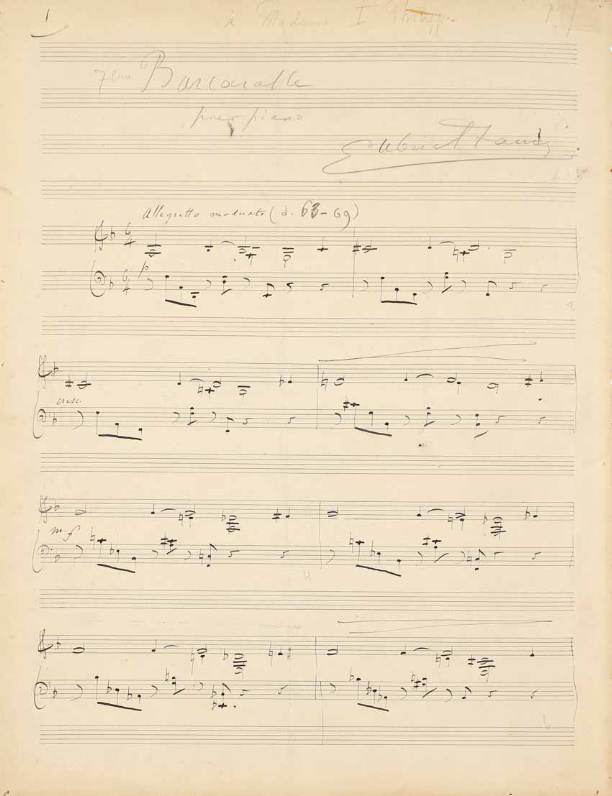 1
à Madame I
7ème Barcarolle
pour piano
Gabriel Fauré
Allegretto moderato ( 63 - 69)
p
cresc.
mf